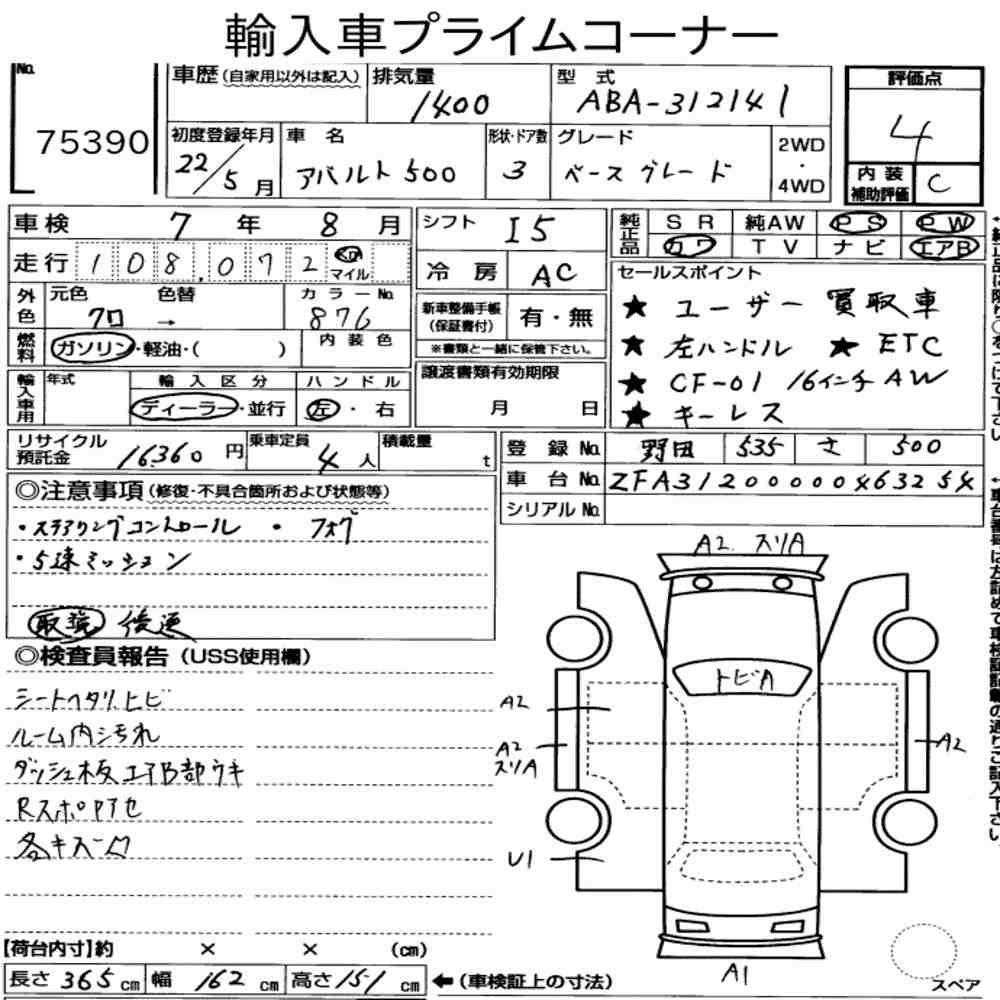 輸入車プライムコーナー
No.
75390
車歴(自家用以外は記入)
排気量
1400
型 式
ABA-312141
評価点
4
初度登録年月
22/5月
車 名
アバルト500
形状・ドア数
3
グレード
ベースグレード
2WD
・
4WD
内装
補助評価
C
車検 7年 8月
走行 108,072 km
マイル
シフト I5
冷房 AC
純正品
SR 純AW PS PW
カワ TV ナビ エアB
外色
元色 色替
クロ →
カラーNo.
876
燃料
ガソリン・軽油・( )
内装色
新車整備手帳
(保証書付)
有・無
※書類と一緒に保管下さい。
セールスポイント
★ ユーザー買取車
★ 左ハンドル ★ ETC
★ CF-01 16インチAW
★ キーレス
輸入車用
年式
輸入区分
ディーラー・並行
ハンドル
左・右
譲渡書類有効期限
月 日
リサイクル
預託金
16360円
乗車定員
4人
積載量
t
登録No. 野田 535 さ 500
車台No. ZFA31200000463254
シリアルNo.
◎注意事項(修復・不具合箇所および状態等)
・ステアリングコントロール ・フォグ
・5速ミッション
取説 後送
◎検査員報告(USS使用欄)
シートヘタリ、ヒビ
ルーム内汚れ
ダッシュ板エアB部ウキ
Rスポロアセ
各キスーク
A2 スリA
トビA
A2
A2
スリA
A2
U1
A1
スペア
【荷台内寸】約 × × (cm)
長さ365cm 幅162cm 高さ151cm ←(車検証上の寸法)